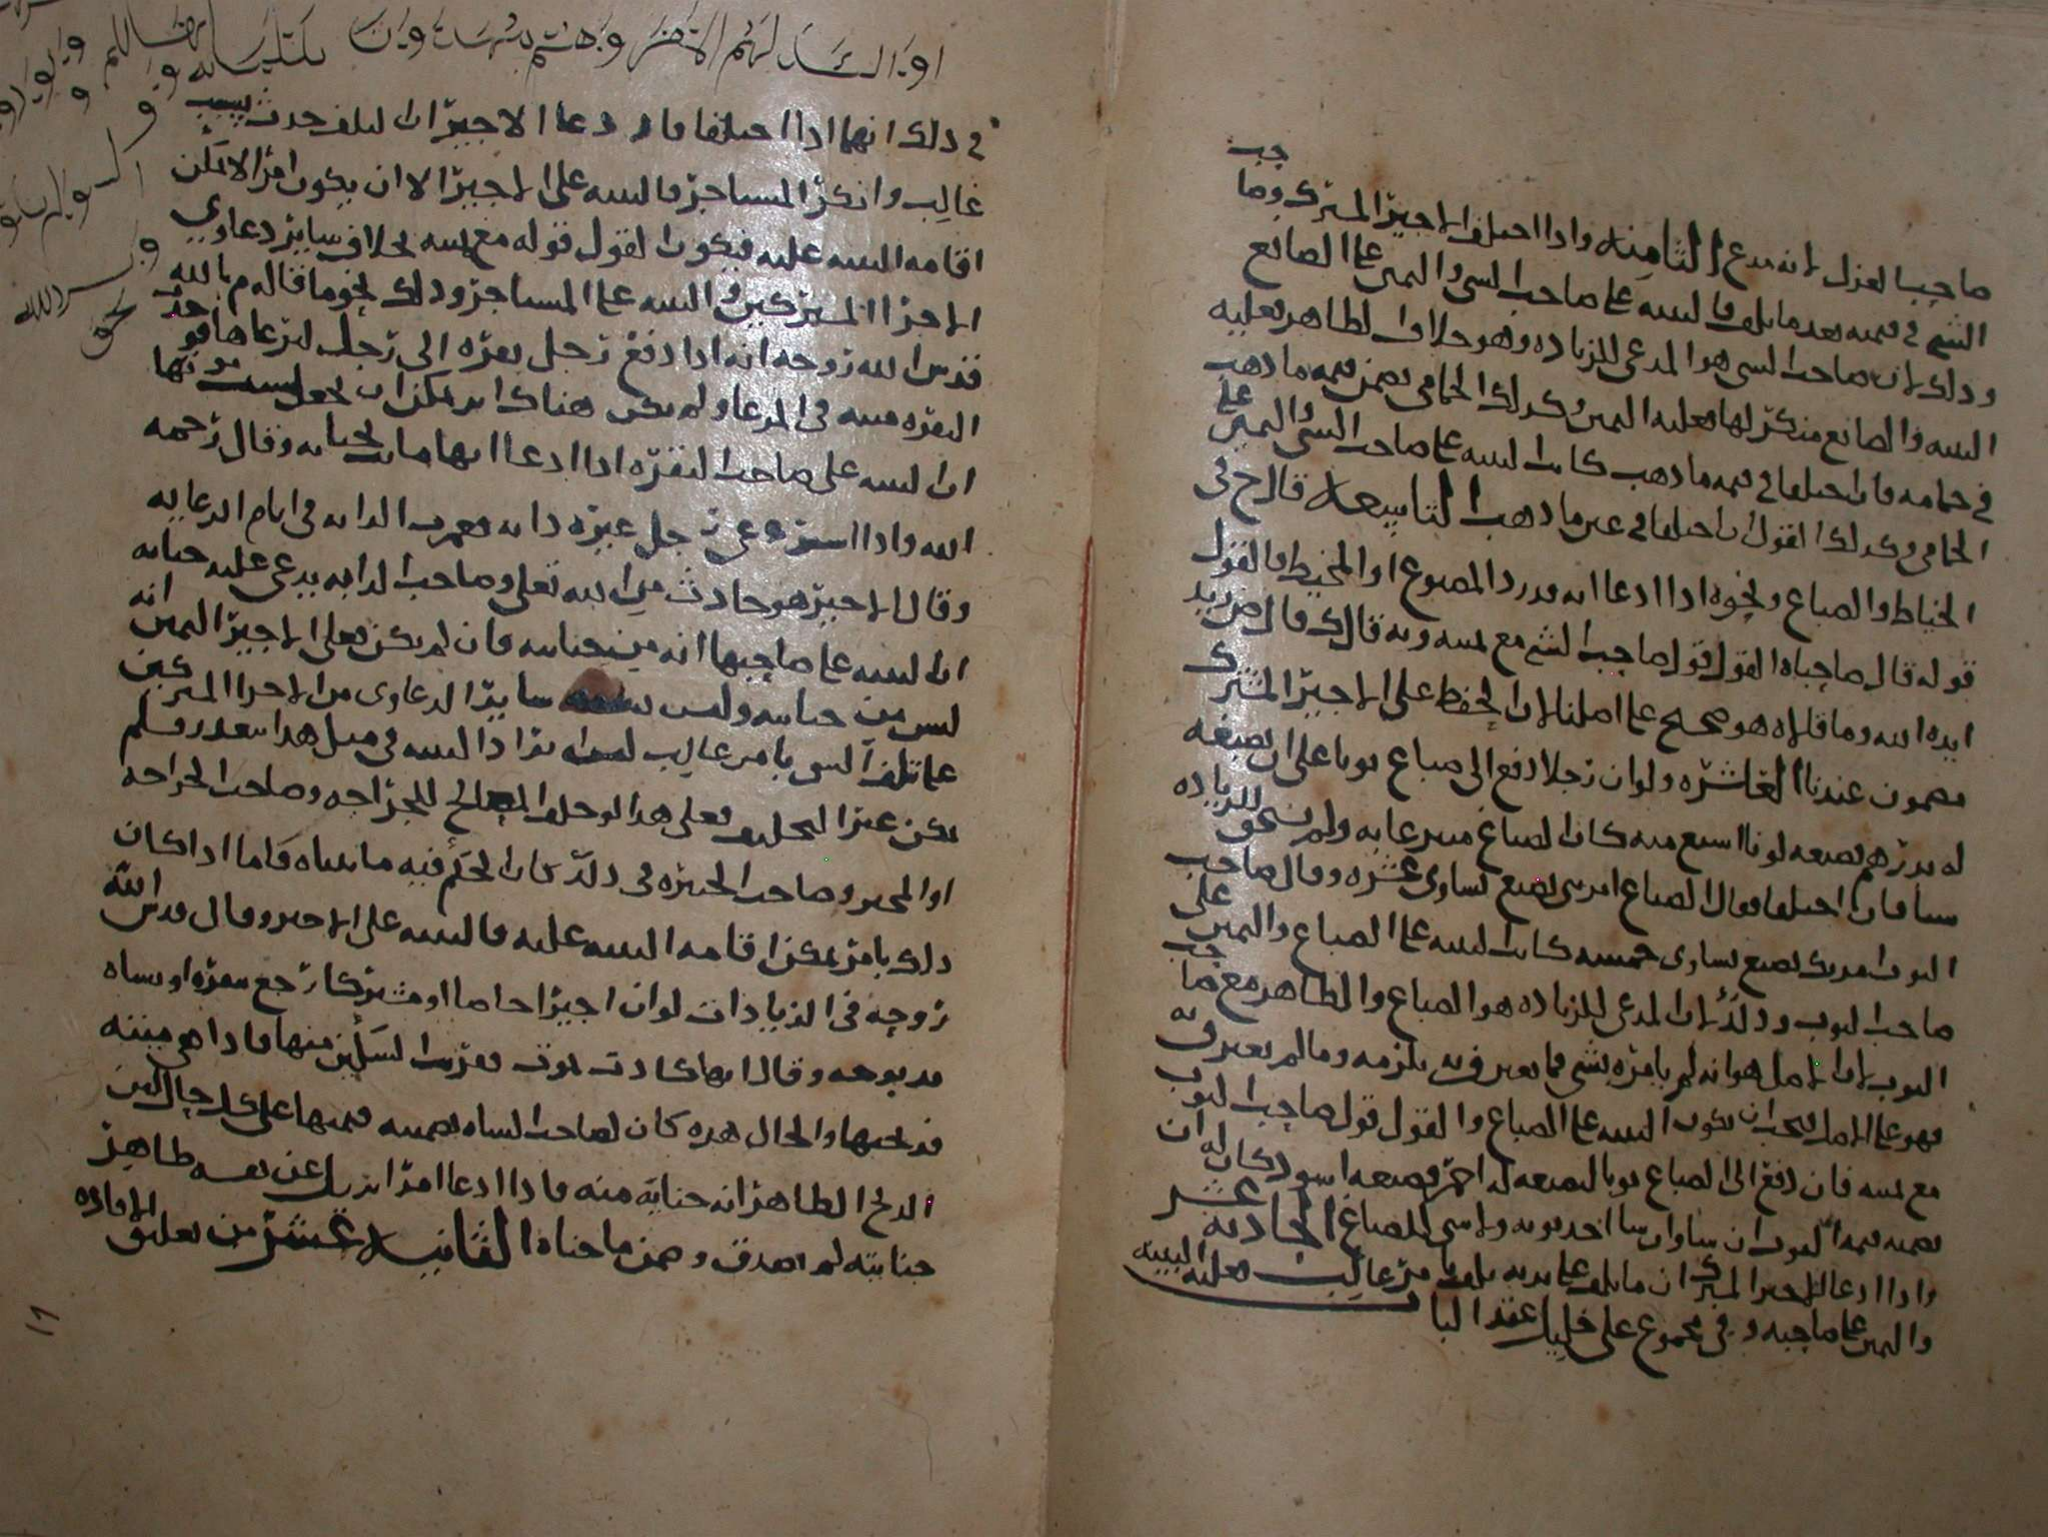 صاحب الغزل لانه مدع الثامنه واذا اختلف الاجير المشترك وصاحب
الشي في قيمته بعد ما تلف فالبينه على صاحب الشي واليمين على الصانع
وذلك لان صاحب الشي هو المدعي للزياده وهو خلاف الظاهر فعليه
البينه والصانع منكر لها فعليه اليمين وكذلك الحمامي يضمن قيمه ما ذهب
في حمامه فان اختلفا في قيمه ما ذهب كانت البينه على صاحب الشي واليمين على
الحمامي وكذلك القول ان اختلفا في عين ما ذهب التاسعه قال ح في
الخياط والصباغ ونحوه اذا ادعا انه قد رد المصبوغ او المخيط فالقول
قوله قال صاحباه القول قول صاحب الشي مع يمينه وبه قال ك قال ض زيد
ايده الله وما قالاه هو صحيح على اصلنا لان الحفظ على الاجير المشترك
مضمون عندنا العاشره ولو ان رجلا دفع الى صباغ ثوبا على ان يصبغه
له بدرهم فصبغه لونا اشبع منه كان الصباغ متبرعا به ولم يستحق للزياده
شيا فان اختلفا فقال الصباغ امرتني بصبغ يساوي عشره وقال صاحب
الثوب امرتك بصبغ يساوي خمسه كانت البينه على الصباغ واليمين على
صاحب الثوب وذلك لان المدعي للزياده هو الصباغ والظاهر مع صاحب
الثوب لان الاصل هو انه لم يامره بشي فما يعترف به يلزمه وما لم يعترف به
فهو على الاصل فيجب ان يكون البينه على الصباغ والقول قول صاحب الثوب
مع يمينه فان دفع الى الصباغ ثوبا ليصبغه له احمر فصبغه اسود كان له ان
يضمنه قيمه الثوب ان شا وان شا اخذ ثوبه ولا شي للصباغ الحاديه عشر
واذا ادعا الاجير المشترك ان ما تلف على يديه تلف بامر غالب فعليه البينه
واليمين على صاحبه وفي مجموع علي خليل عقد الباب
في ذلك انهما اذا اختلفا فان دعا الاجير ان التلف حدث بسبب
غالب وانكر المستاجر فالبينه على الاجير الا ان يكون امرا لا يمكن
اقامه البينه عليه فيكون القول قوله مع يمينه بخلاف ساير دعاوي
الاجرا المشتركين والبينه على المستاجر وذلك نحو ما قاله م بالله
قدس الله روحه انه اذا دفع رجل بقره الى رجل ليرعاها فوجد
البقره ميته في المرعا ولم يكن هناك اثر يمكن ان يجعل سبب موتها
ان البينه على صاحب البقره اذا ادعا انها ماتت بجنايه وقال رحمه
الله واذا استرعى رجل غيره دابه فعميت الدابه في ايام الرعايه
وقال الاجير هو حادث من الله تعلى وصاحب الدابه يدعي عليه جنايه
ان البينه على صاحبها انه من جنايته فان لم يكن فعلى الاجير اليمين انه
ليس من جنايته وليس ساير الدعاوى من الاجرا المشتركين
على تلف الشي بامر غالب اذا البينه في مثل هذا يتعذر فلم
يكن غير التحليف فعلى هذا لو حلف المصالح للجراحه وصاحب الجراحه
او المجبر وصاحب الجبيره في ذلك كان الحكم فيه ما بيناه فاما اذا كان
ذلك بامر يمكن اقامه البينه عليه فالبينه على الاجير وقال قدس الله
روحه في الزيادات لو ان اجيرا خاصا او مشتركا رجع ببقره او بشاه
مذبوحه وقال انها كادت تموت فعرضت السكين منها فاذا هي ميتته
فذبحتها والحال هذه كان لصاحب الشاه تضمينه قيمتها على كل حال لان
الذبح الظاهر انه جنايه منه فاذا ادعا امرا يزيل عن نفسه ظاهر
جنايته لم يصدق وضمن ما جناه الثانيه عشر من تعليق الافاده